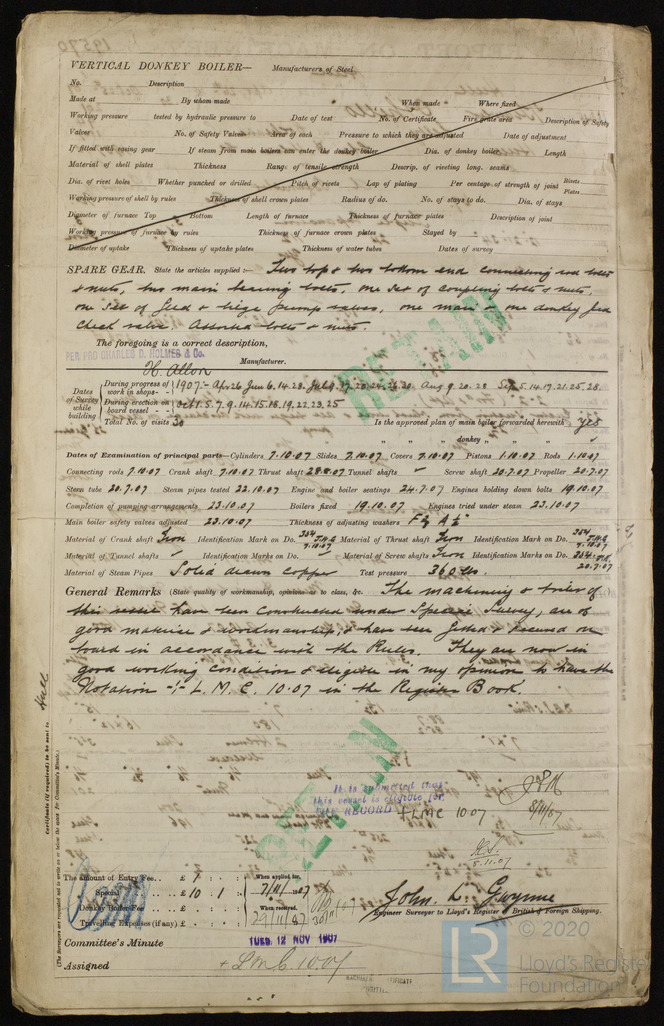 VERTICAL DONKEY BOILER— Manufacturers of Steel
No. Description
Made at By whom made When made Where fixed
Working pressure tested by hydraulic pressure to Date of test No. of Certificate Fire grate area Description of Safety
Valves No. of Safety Valves Area of each Pressure to which they are adjusted Date of adjustment
If fitted with easing gear If steam from main boilers can enter the donkey boiler Dia. of donkey boiler Length
Material of shell plates Thickness Range of tensile strength Descrip. of riveting long. seams
Dia. of rivet holes Whether punched or drilled Pitch of rivets Lap of plating Per centage of strength of joint Rivets Plates
Working pressure of shell by rules Thickness of shell crown plates Radius of do. No. of stays to do. Dia. of stays
Diameter of furnace Top Bottom Length of furnace Thickness of furnace plates Description of joint
Working pressure of furnace by rules Thickness of furnace crown plates Stayed by
Diameter of uptake Thickness of uptake plates Thickness of water tubes Dates of survey
SPARE GEAR. State the articles supplied :— Two top & two bottom end connecting rod bolts
& nuts, two main bearing bolts, one set of coupling bolts & nuts,
one set of feed & bilge pump valves, one main & one donkey feed
check valve, assorted bolts & nuts.
The foregoing is a correct description,
PER PRO CHARLES D. HOLMES & Co.
Manufacturer.
H. Allon
RETAIN
Dates of Survey while building
During progress of work in shops - - 1907:- Apr 26 Jun 6.14.28. Jul 9.17.20.24.26.30 Aug 9.20.28 Sep 5.14.17.21.25.28.
During erection on board vessel - - - Oct 1.5.7.9.14.15.18.19.22.23.25
Total No. of visits 30 Is the approved plan of main boiler forwarded herewith yes
" " donkey " " "
Dates of Examination of principal parts—Cylinders 7.10.07 Slides 7.10.07 Covers 7.10.07 Pistons 1.10.07 Rods 1.10.07
Connecting rods 7.10.07 Crank shaft 7.10.07 Thrust shaft 28.8.07 Tunnel shafts Screw shaft 20.7.07 Propeller 20.7.07
Stern tube 20.7.07 Steam pipes tested 22.10.07 Engine and boiler seatings 24.7.07 Engines holding down bolts 19.10.07
Completion of pumping arrangements 23.10.07 Boilers fixed 19.10.07 Engines tried under steam 23.10.07
Main boiler safety valves adjusted 23.10.07 Thickness of adjusting washers
Material of Crank shaft Iron Identification Mark on Do. 7.10.07 Material of Thrust shaft Iron Identification Mark on Do. 7.10.07
Material of Tunnel shafts Identification Marks on Do. Material of Screw shafts Iron Identification Marks on Do. 20.7.07
Material of Steam Pipes Solid drawn copper Test pressure 360 lbs.
General Remarks (State quality of workmanship, opinions as to class, &c. The machinery & boiler of
this vessel have been constructed under Special Survey, are of
good material & workmanship, & have been fitted & secured on
board in accordance with the Rules. They are now in
good working condition & eligible in my opinion to have the
Notation + L. M. C. 10.07 in the Register Book.
Hull
Certificate (if required) to be sent to
(The Surveyors are requested not to write on or below the space for Committee's Minute.)
RETAIN
It is submitted that
this vessel is eligible for
THE RECORD + LMC 10.07
8/11/07
8.11.07
The amount of Entry Fee .. £ 1 : : When applied for,
Special .. £ 10 : 1 : 7/11/1907
Donkey Boiler Fee .. £ : : When received,
Travelling Expenses (if any) £ : : 29/11/07 30/11/07
John. L. Gwynne
Engineer Surveyor to Lloyd's Register of British & Foreign Shipping.
Committee's Minute TUES. 12 NOV 1907
Assigned + L M C. 10.07
© 2020
LR
Lloyd's Register
Foundation